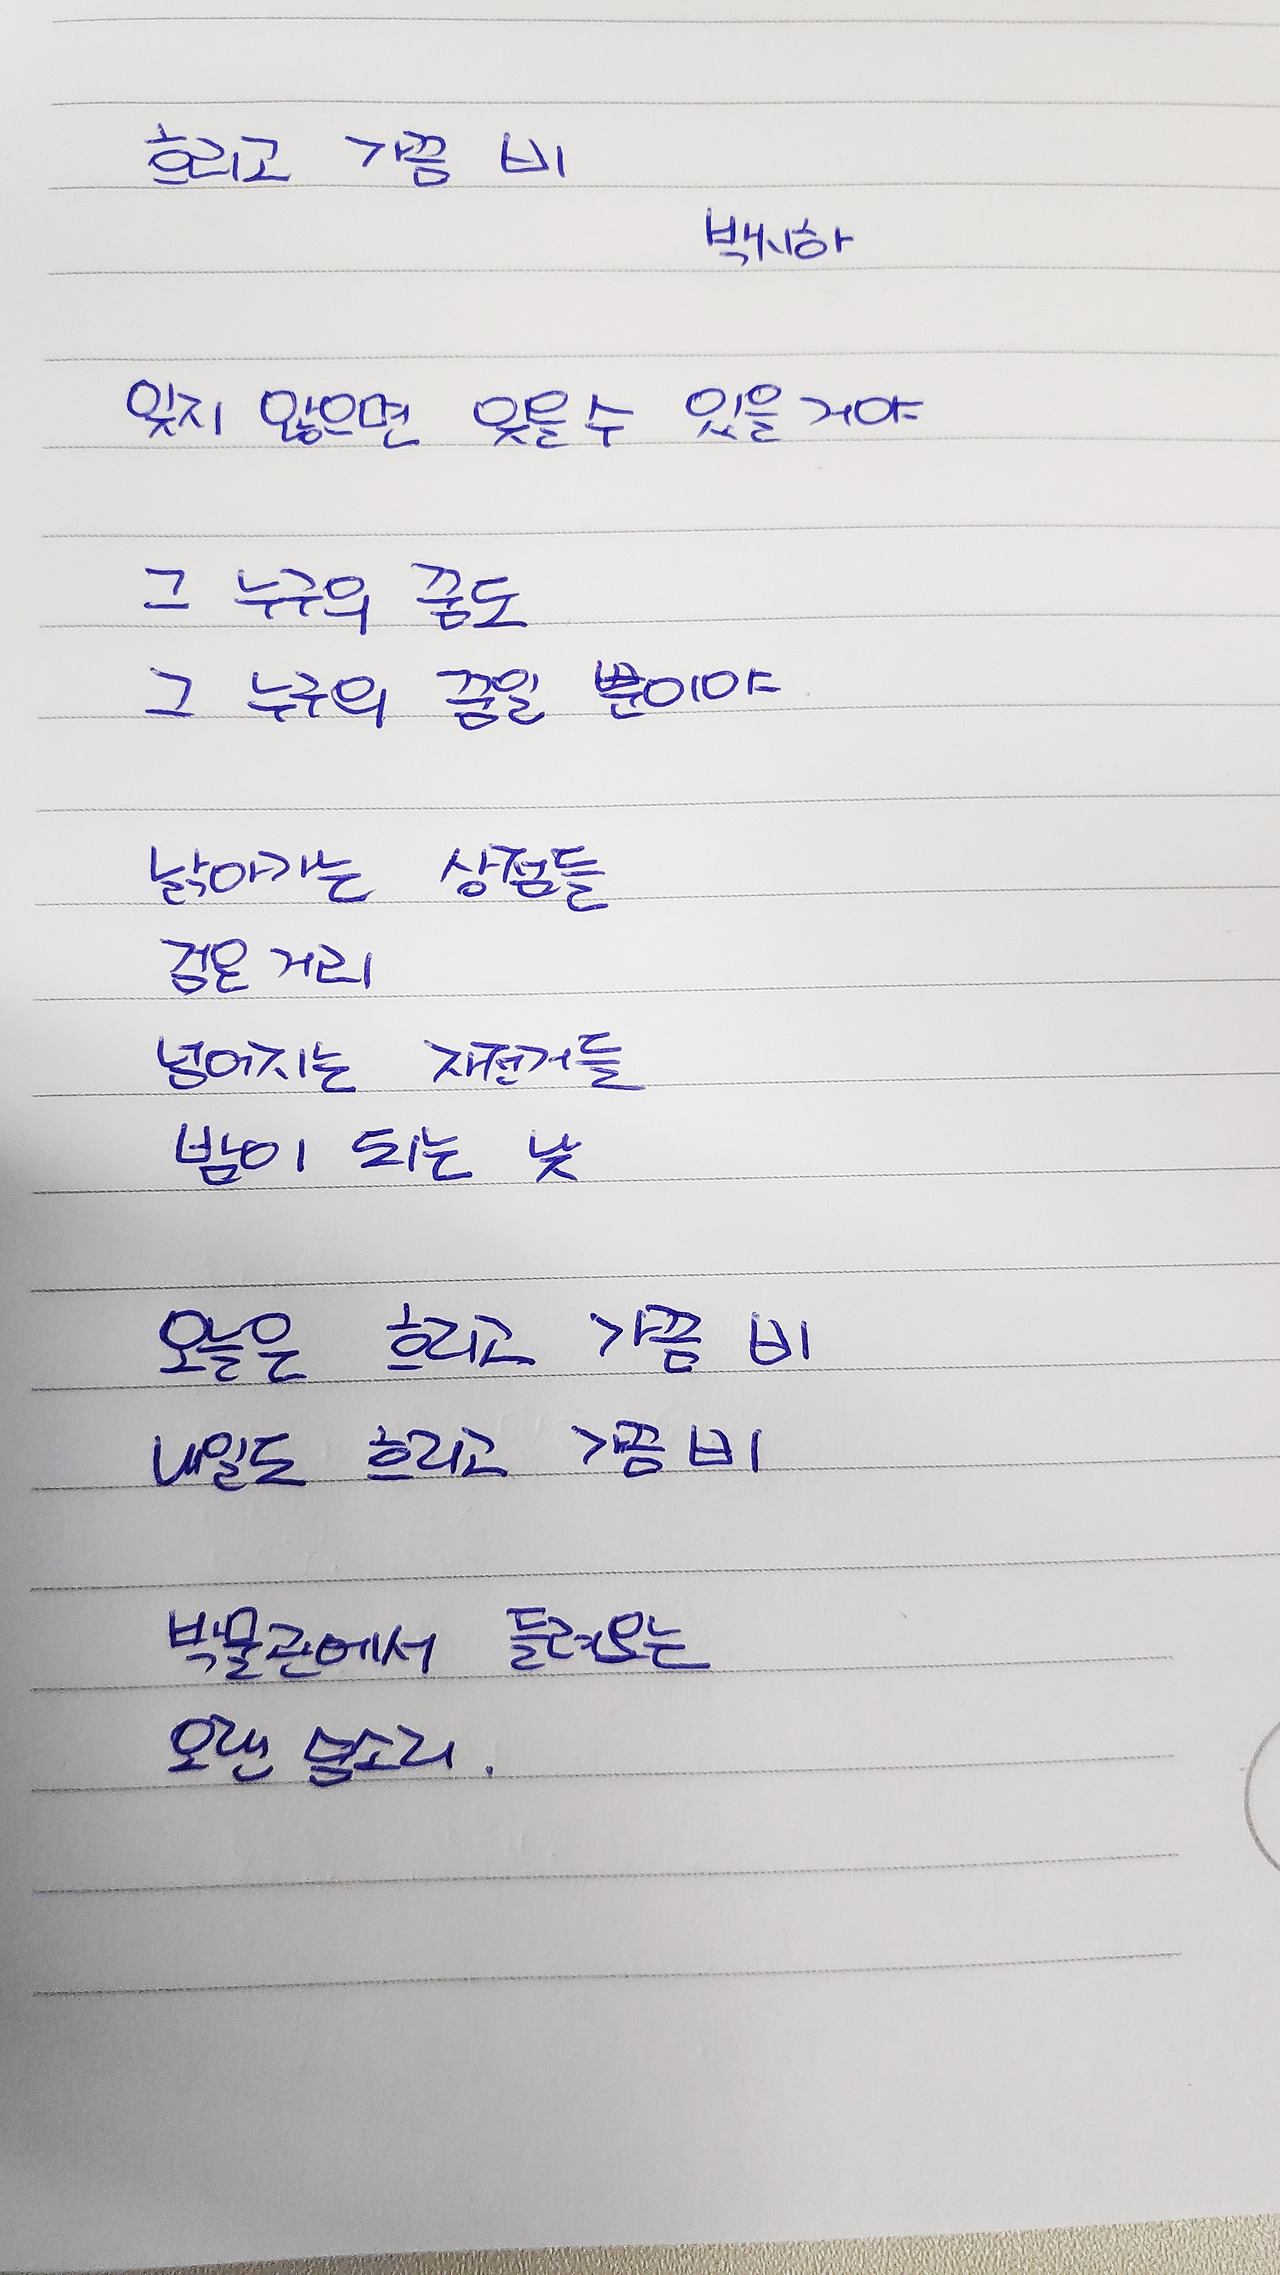 흐리고 가끔 비
백시하
잊지 않으면 잊을 수 있을 거야
그 누구의 꿈도
그 누구의 꿈일 뿐이야
낡아가는 상점들
검은 거리
넘어지는 자전거들
밤이 되는 낮
오늘은 흐리고 가끔 비
내일도 흐리고 가끔 비
박물관에서 들려오는
오랜 물소리.